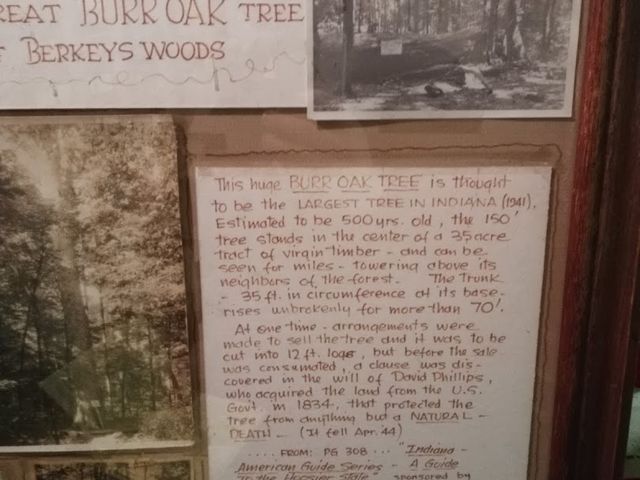 REAT BURR OAK TREE
F BERKEYS WOODS
This huge BURR OAK TREE is thought
to be the LARGEST TREE IN INDIANA (1941).
Estimated to be 500 yrs. old, the 150'
tree stands in the center of a 35 acre
tract of virgin timber - and can be
seen for miles - towering above its
neighbors of the forest. The trunk
- 35 ft. in circumference at its base -
rises unbrokenly for more than 70'.
At one time - arrangements were
made to sell the tree and it was to be
cut into 12 ft. logs, but before the sale
was consumated, a clause was dis-
covered in the will of David Phillips,
who acquired the land from the U.S.
Govt. in 1834, that protected the
tree from anything but a NATURAL -
DEATH - (It fell Apr. '44)
... FROM: PG 308 ... "Indiana -
American Guide Series - A Guide
to the Hoosier State" sponsored by